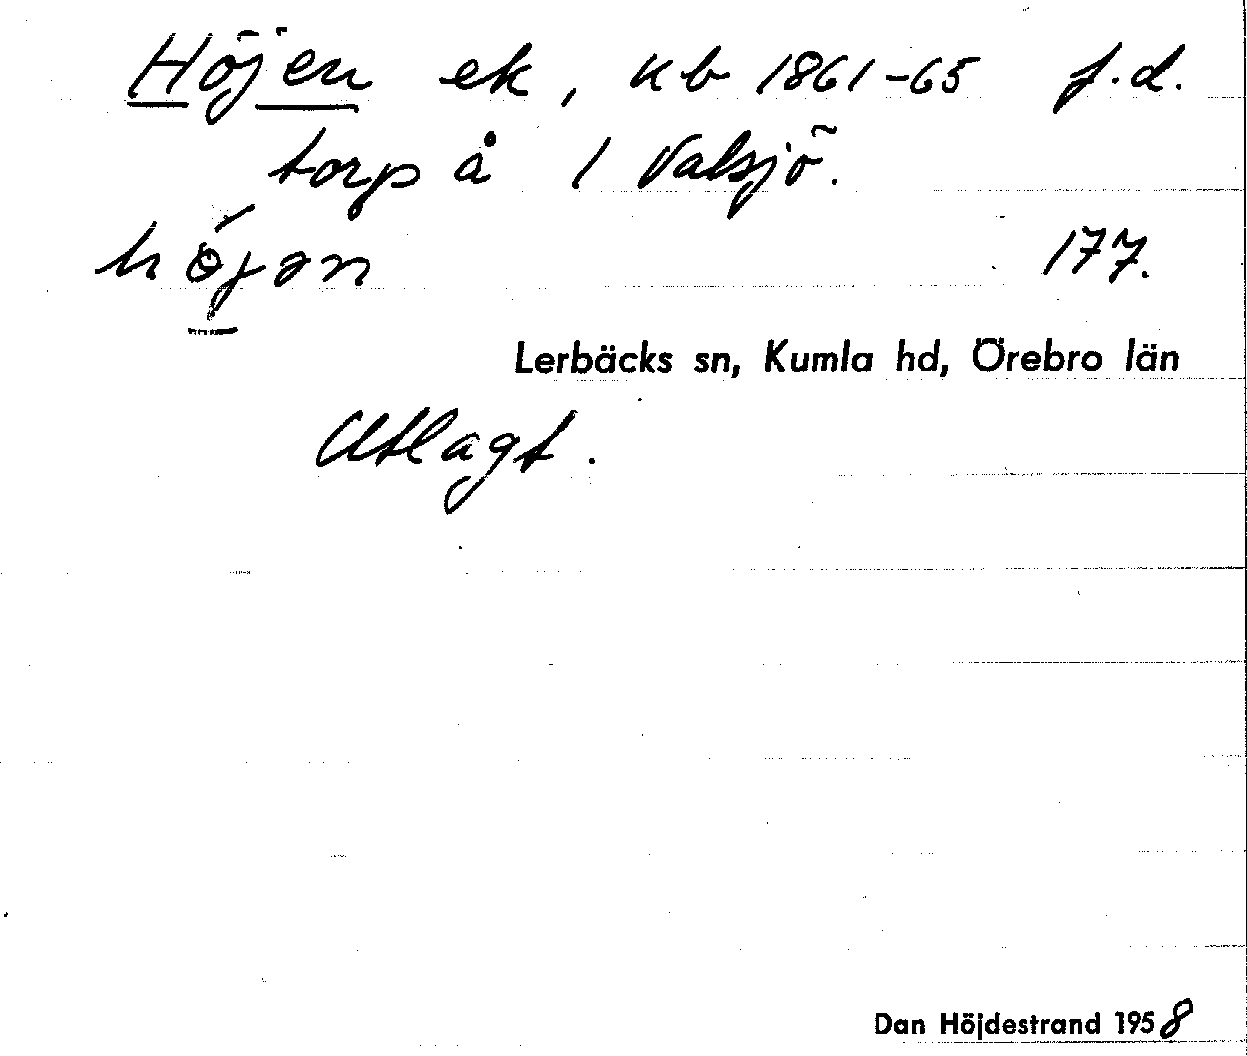 Höjen ek, kb 1861-65 f.d.
torp å 1 Valsjö.
höjən
177.
Lerbäcks sn, Kumla hd, Örebro län
Utlagt.
Dan Höjdestrand 1958